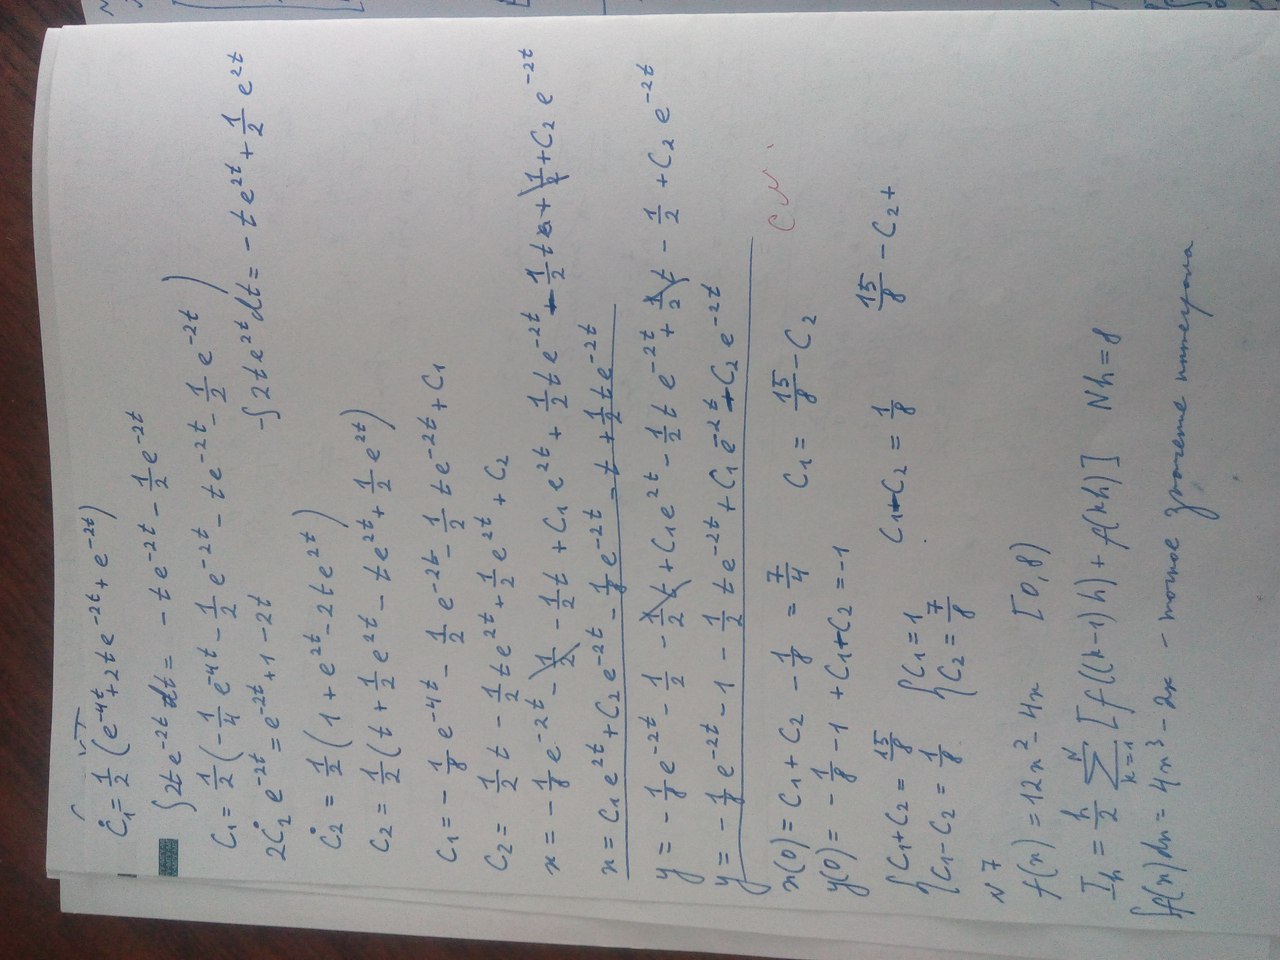 Ċ₁ = 1/2 (e^{-4t} + 2te^{-2t} + e^{-2t})
∫ 2te^{-2t} dt = - te^{-2t} - 1/2 e^{-2t}
C₁ = 1/2 (-1/4 e^{-4t} - 1/2 e^{-2t} - te^{-2t} - 1/2 e^{-2t})
2Ċ₂ e^{-2t} = e^{-2t} + 1 - 2t
-∫ 2te^{2t} dt = - te^{2t} + 1/2 e^{2t}
Ċ₂ = 1/2 (1 + e^{2t} - 2te^{2t})
C₂ = 1/2 (t + 1/2 e^{2t} - te^{2t} + 1/2 e^{2t})
C₁ = - 1/8 e^{-4t} - 1/2 e^{-2t} - 1/2 te^{-2t} + C₁
C₂ = 1/2 t - 1/2 te^{2t} + 1/2 e^{2t} + C₂
x = - 1/8 e^{-2t} - 1/2 - 1/2 t + C₁ e^{2t} + 1/2 te^{-2t} - 1/2 t + 1/2 + C₂ e^{-2t}
x = C₁e^{2t} + C₂e^{-2t} - 1/8 e^{-2t} - t + 1/2 te^{-2t}
y = - 1/8 e^{-2t} - 1/2 - 1/2 t + C₁e^{2t} - 1/2 te^{-2t} + 1/2 t - 1/2 + C₂ e^{-2t}
y = - 1/8 e^{-2t} - 1 - 1/2 te^{-2t} + C₁e^{-2t} + C₂e^{-2t}
x(0) = C₁ + C₂ - 1/8 = 7/4
C₁ = 15/8 - C₂
y(0) = - 1/8 - 1 + C₁ + C₂ = -1
{ C₁ + C₂ = 15/8
C₁ - C₂ = 1/8
{ C₁ = 1
C₂ = 7/8
C₁ + C₂ = 1/8
15/8 - C₂ +
N7
f(x) = 12x² - 4x [0,8)
I_h = h/2 Σ_{k=1}^{N} [f((k-1)h) + f(kh)] Nh = 8
∫f(x)dx = 4x³ - 2x - точное значение интеграла